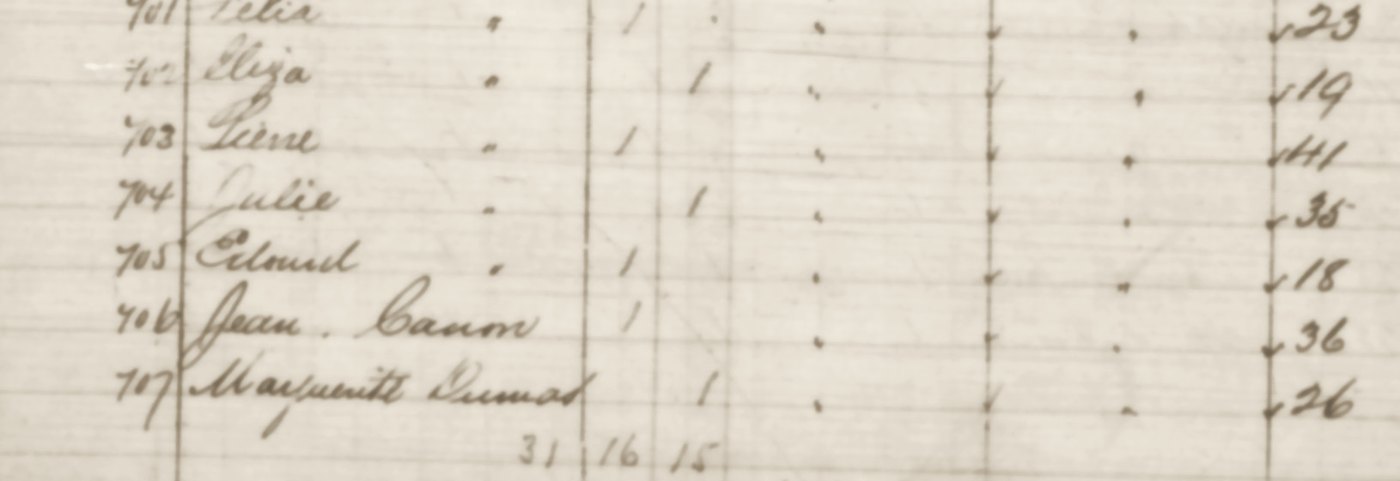 701 Felia " 1 " " " " 23
702 Eliza " 1 " " " 19
703 Pierre " 1 " " " 41
704 Julie " 1 " " " 35
705 Edouard " 1 " " " 18
706 Jean . Canon 1 " " " 36
707 Marguerite Dumas 1 " " " 26
31 16 15